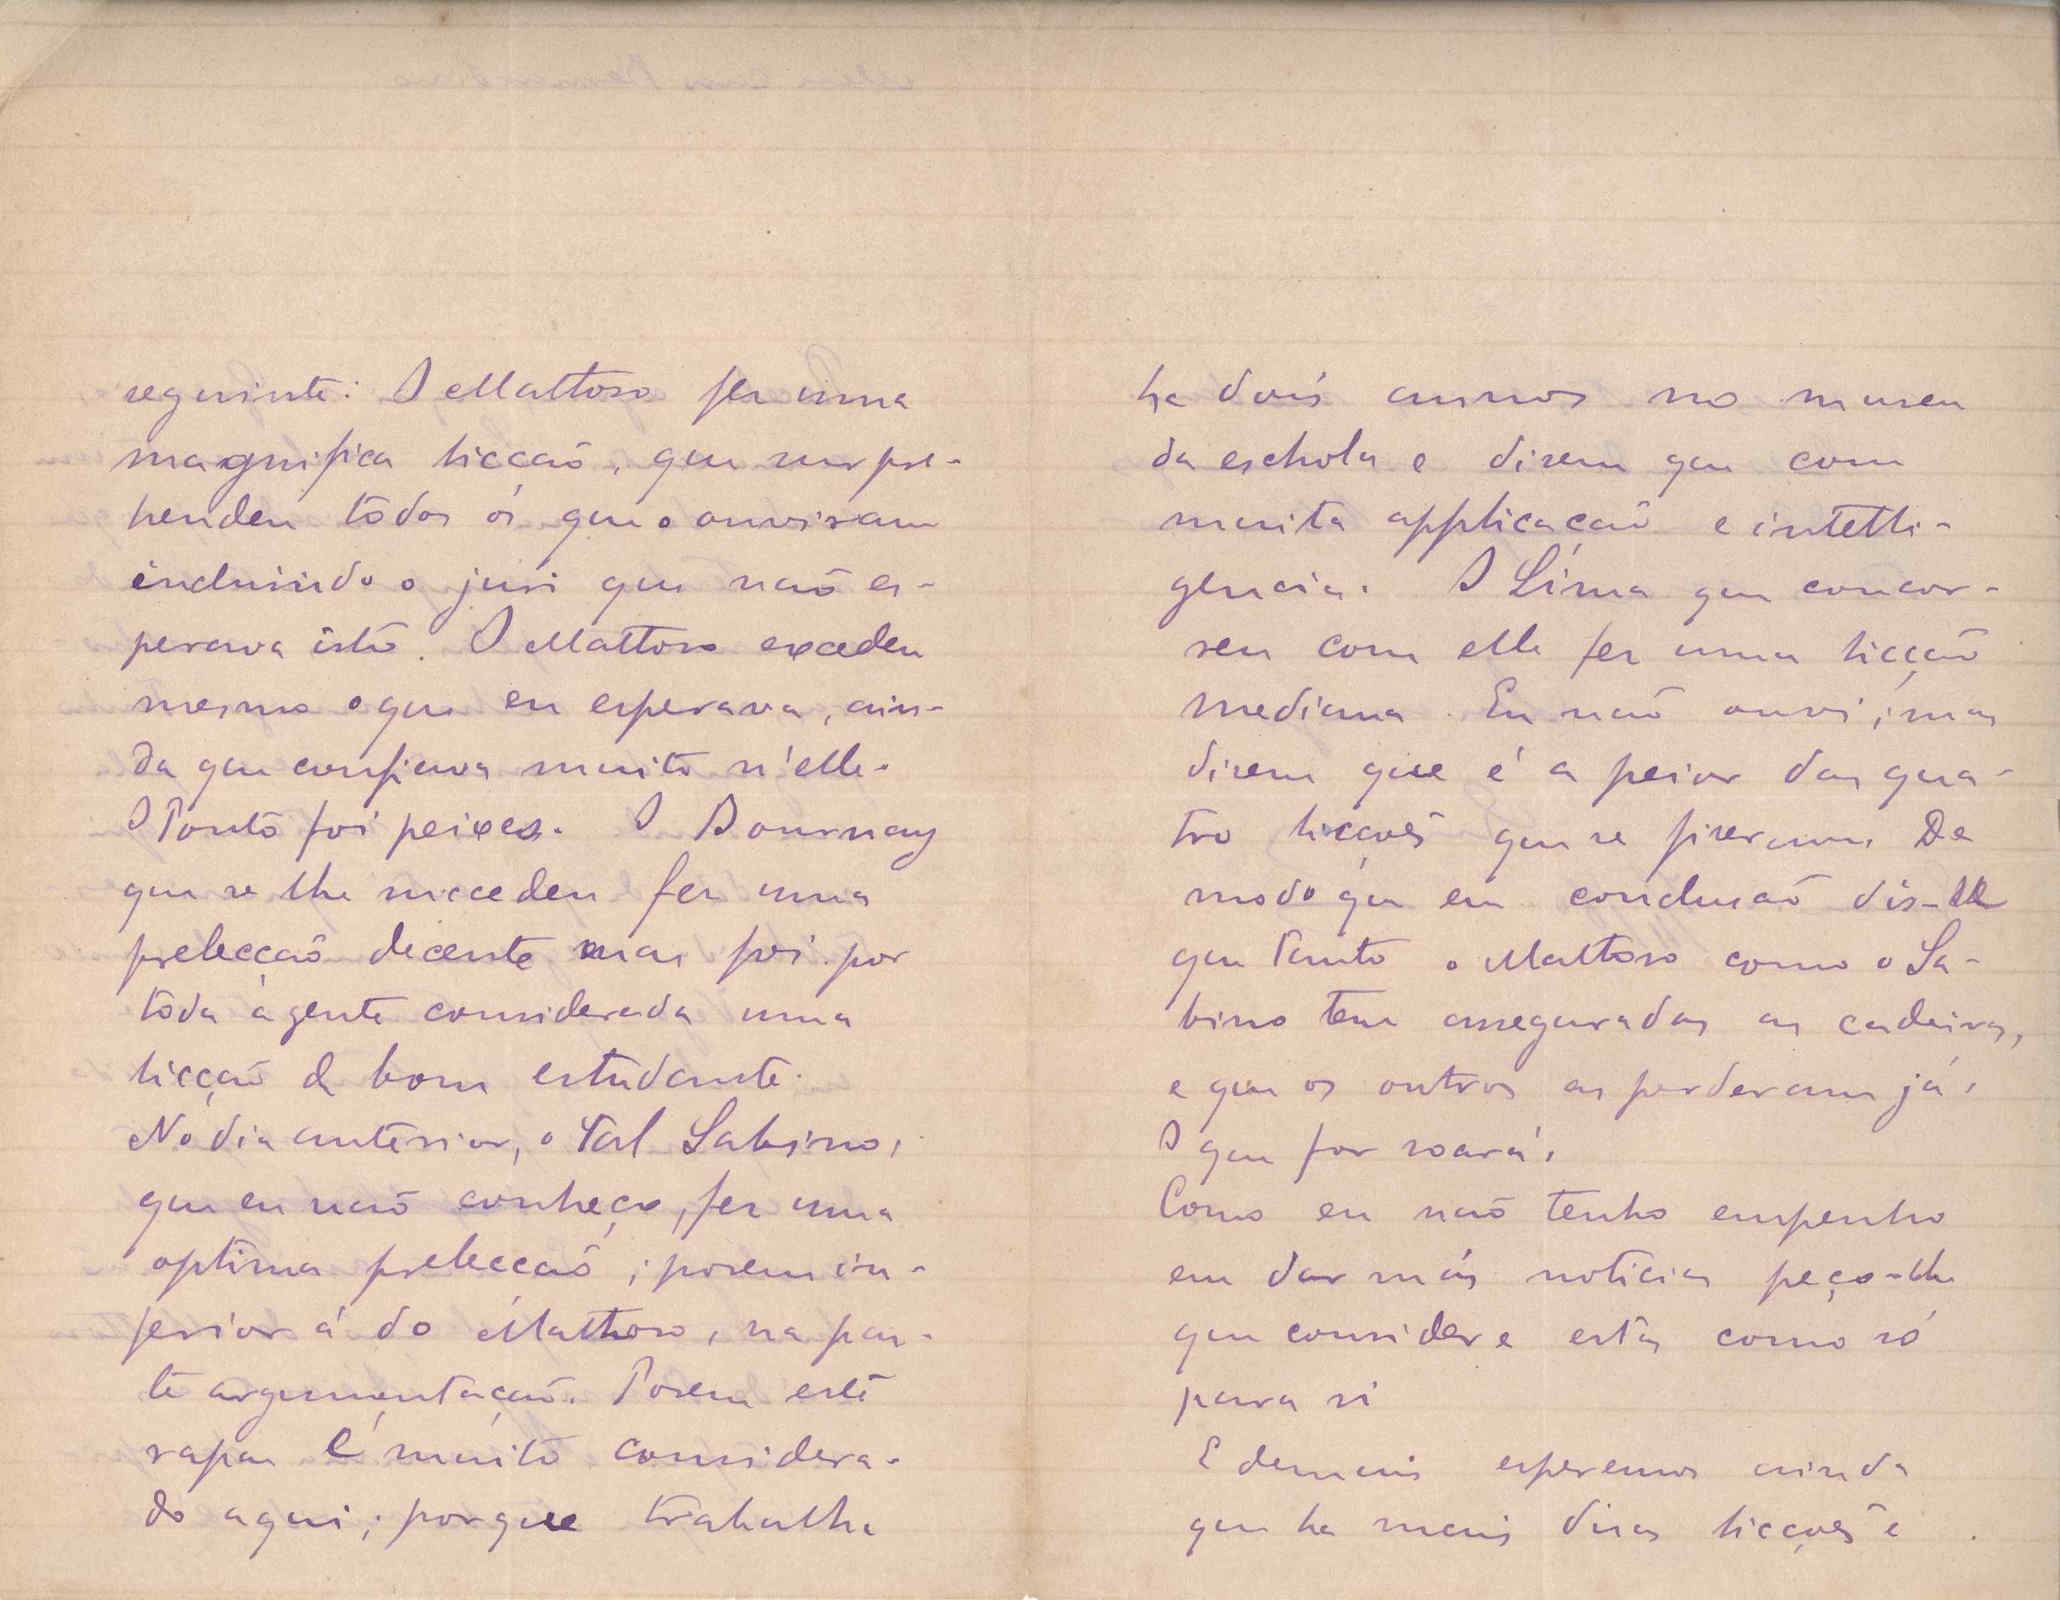 seguinte: O Mattoso fez uma
magnifica licção, que surpre-
hendeu todos os que o ouviram
incluindo o juri que não es-
perava isto. O Mattoso excedeu
mesmo o que eu esperava, ain-
da que confiava muito n'elle.
O Ponto foi peixes. O Bournay
que se lhe succedeu fez uma
prelecção decente mas foi por
toda a gente considerada uma
licção de bom estudante.
No dia anterior, o tal Sabino,
que eu não conheço, fez uma
optima prelecção; porem in-
ferior á do Mattoso, na par-
te argumentação. Porem este
rapaz é muito considera-
do aqui; porque trabalha
ha dois annos no museu
da eschola e dizem que com
muita applicação e intelli-
gencia. O Lima que concor-
reu com elle fez uma licção
mediana. Eu não ouvi, mas
dizem que é a peior das qua-
tro licções que se fizeram. De
modo que em conclusão diz-se
que tanto o Mattoso como o Sa-
bino tem asseguradas as cadeiras,
e que os outros as perderam já.
O que for soará.
Como eu não tenho empenho
em dar más noticias peço-lhe
que considere estas como só
para si
E demais esperemos ainda
que ha mais duas licções e